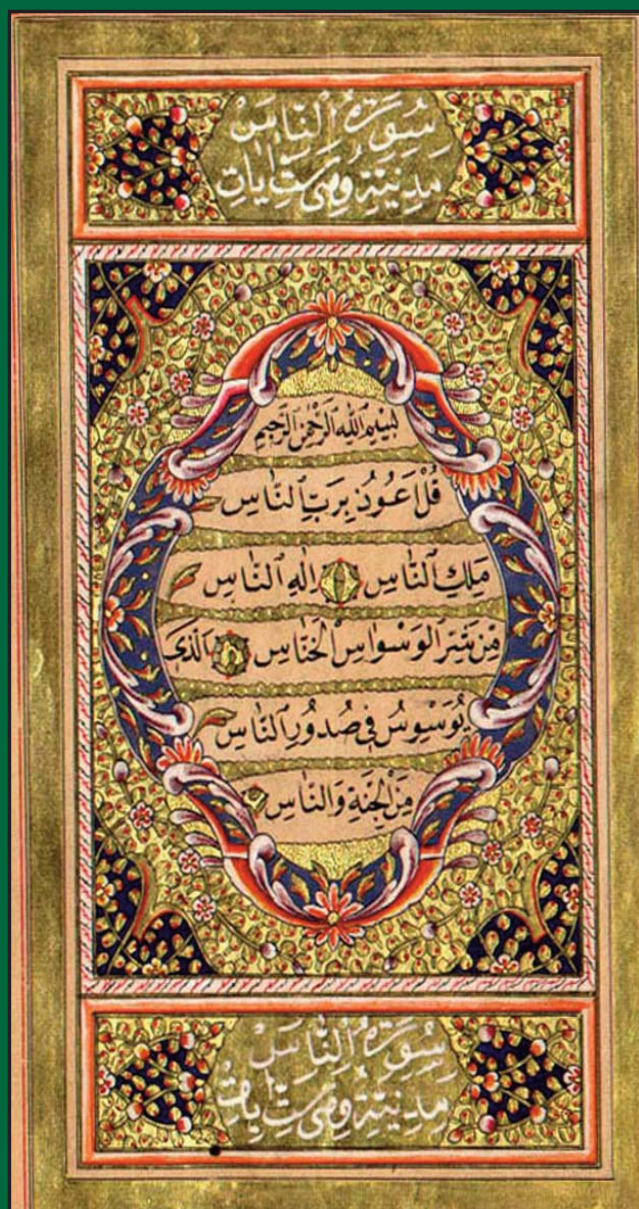 سُورَةُ النَّاسِ
مَدِينَةٌ وَهِيَ سِتُّ اٰيَاتٍ
بِسْمِ اللّٰهِ الرَّحْمٰنِ الرَّحِيمِ
قُلْ اَعُوذُ بِرَبِّ النَّاسِ
مَلِكِ النَّاسِ اِلٰهِ النَّاسِ
مِنْ شَرِّ الْوَسْوَاسِ الْخَنَّاسِ اَلَّذِى
يُوَسْوِسُ فِى صُدُورِ النَّاسِ
مِنَ الْجِنَّةِ وَالنَّاسِ
سُورَةُ النَّاسِ
مَدِينَةٌ وَهِيَ سِتُّ اٰيَاتٍ